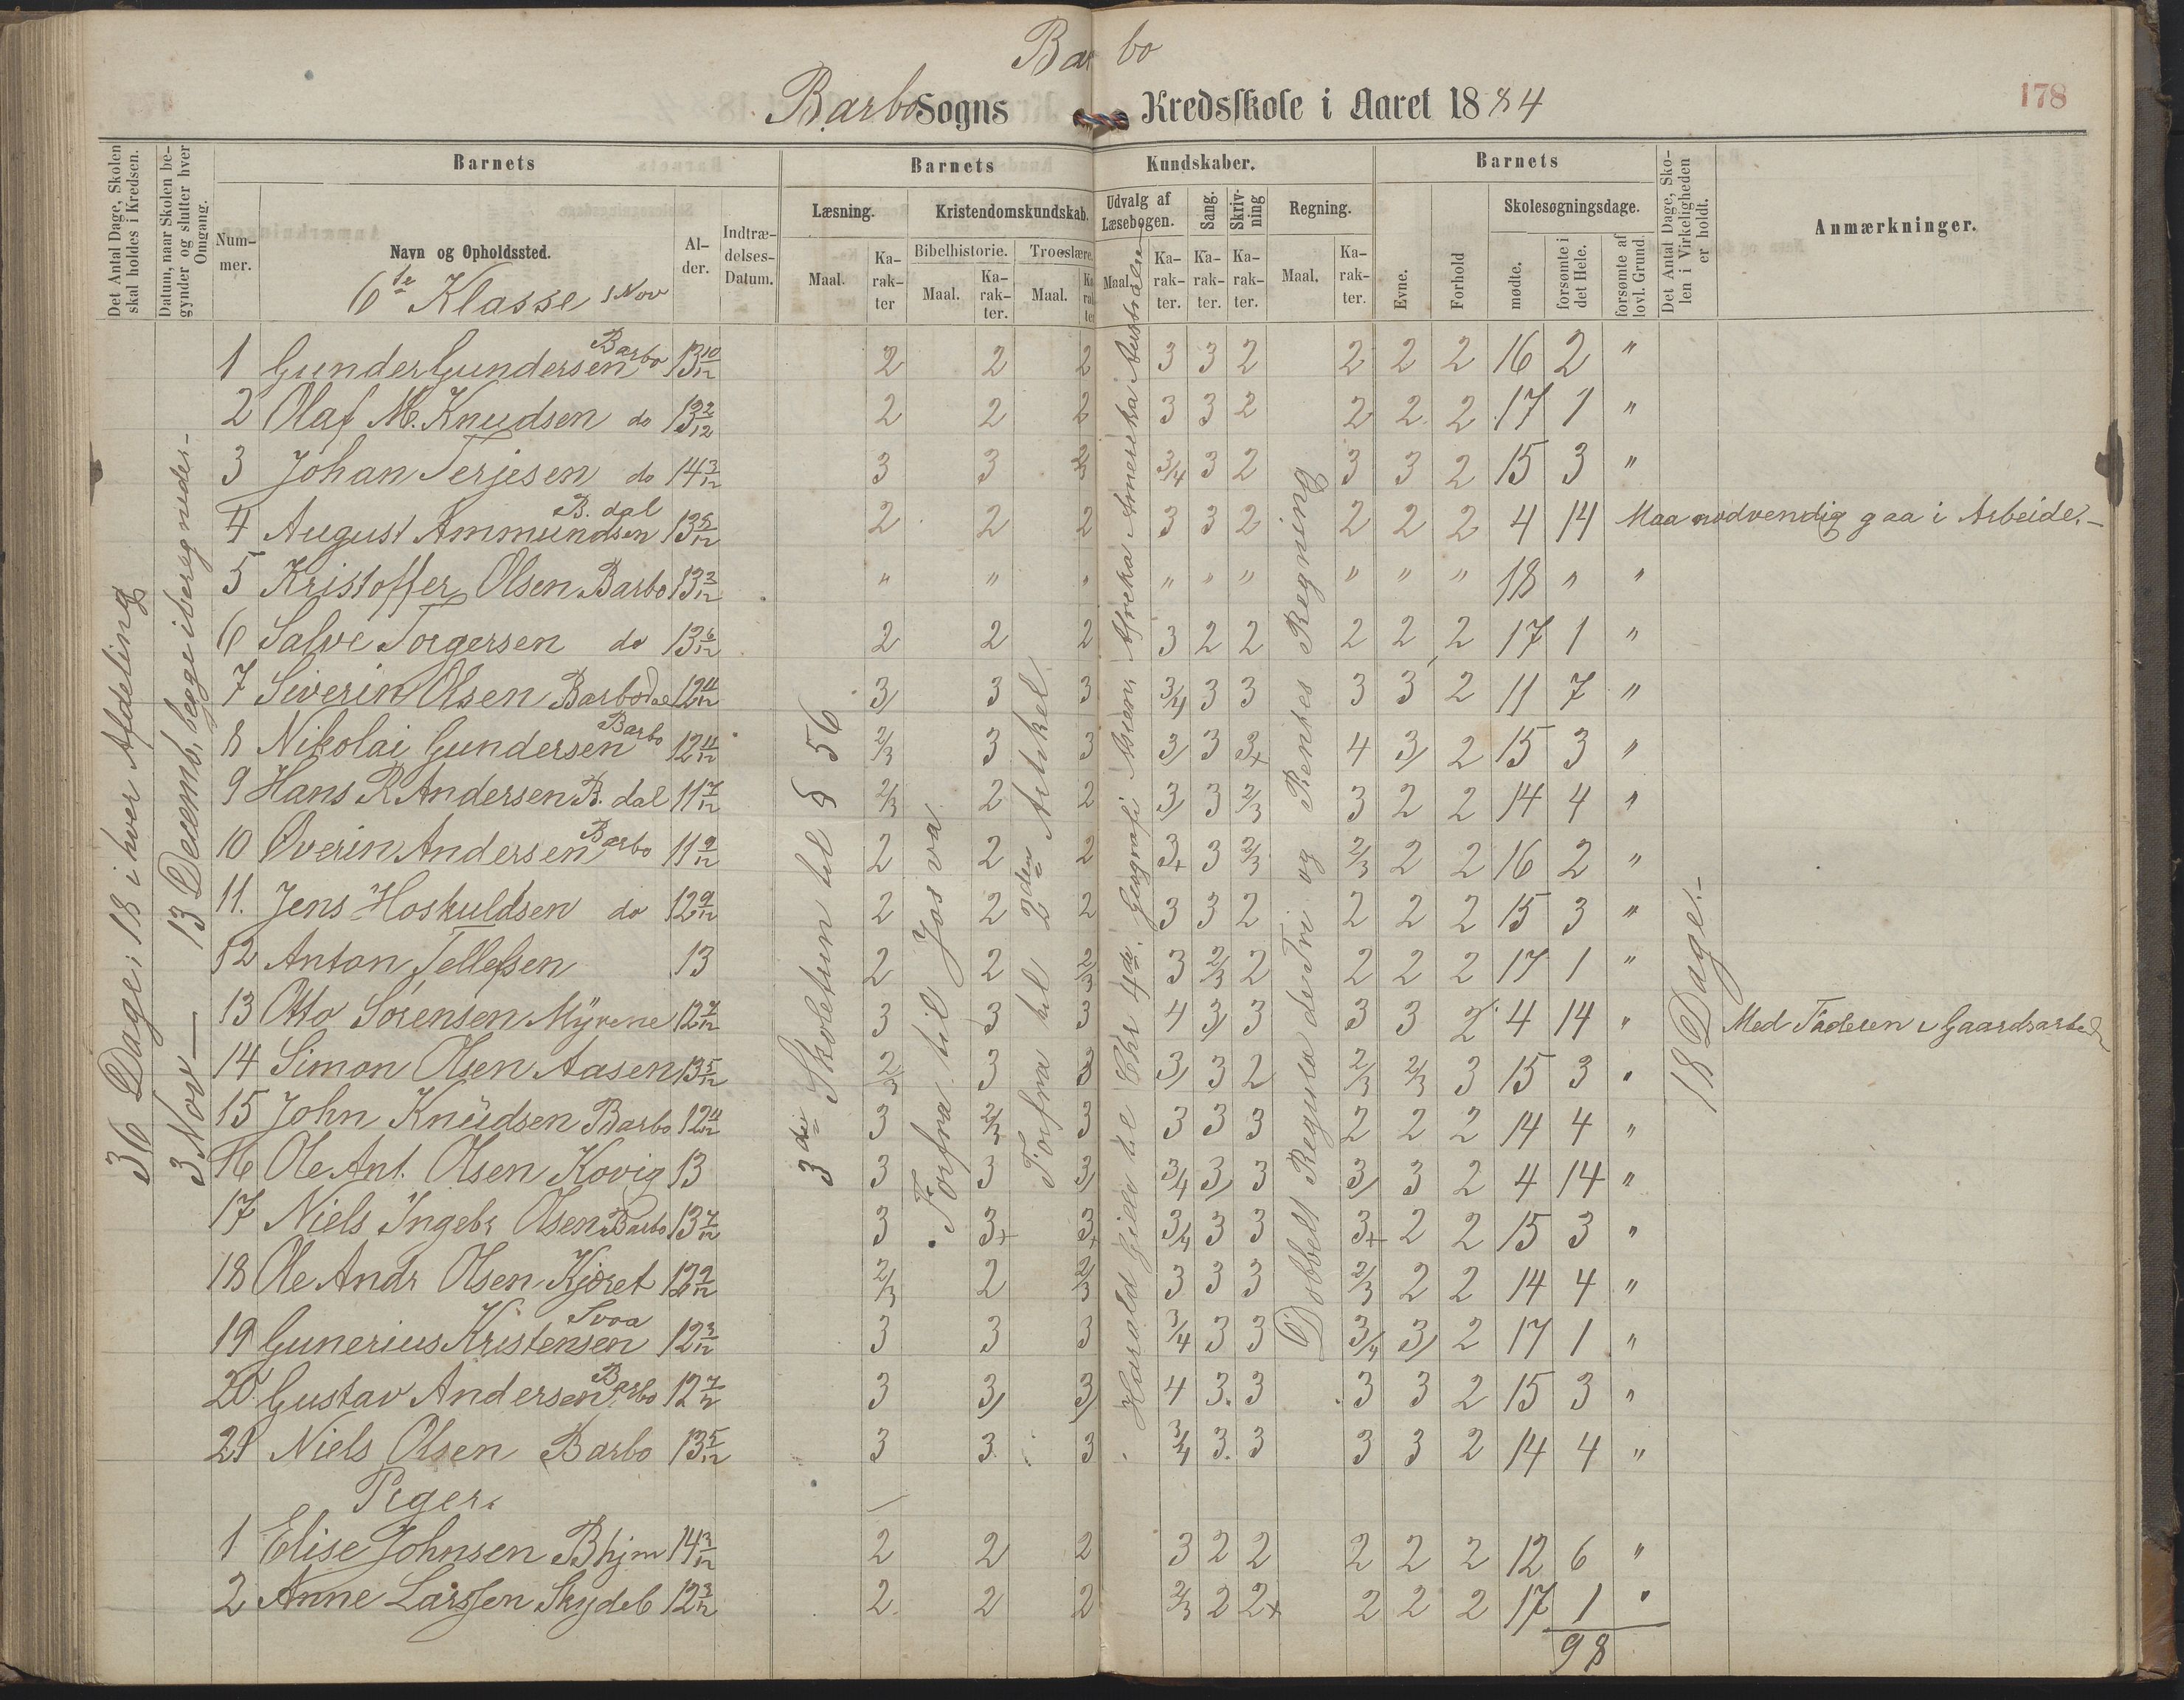 Bar bo
Barbo Sogns Kredsskole i Aaret 1884
178
Det Antal Dage, Skolen skal holdes i Kredsen.
Datum, naar Skolen begynder og slutter hver Omgang.
Barnets
Barnets
Kundskaber.
Barnets
Det Antal Dage, Skolen i Virkeligheden er holdt.
Anmærkninger.
Num-mer.
Navn og Opholdssted.
Al-der.
Indtræ-delses-Datum.
Læsning.
Kristendomskundskab.
Udvalg af Læsebogen.
Sang.
Skriv-ning
Regning.
Evne.
Forhold
Skolesøgningsdage.
Bibelhistorie.
Troeslære.
Maal.
Ka-rak-ter
Maal.
Ka-rak-ter.
Maal.
Ka-rak-ter
Maal.
Ka-rak-ter.
Ka-rak-ter.
Ka-rak-ter.
Maal.
Ka-rak-ter.
mødte.
forsømte i det Hele.
forsømte af lovl. Grund.
6te Klasse 1 Nov
36 Dage, 18 i hver Afdeling
3 Nov — 13 Decemb, begge iberegnede.-
3die Skoletun til § 56
Forfra til Josva
Forfra til 2den Artikel
Harald Gille til Chr 4de. Geografi Asien, Afrika Amerika Australien
Dobbelt Regula de Tri og Rentes Regning
18 Dage.-
1 Gunder Gundersen Barbo 13 10/12 2 2 2 3 3 2 2 2 2 16 2 "
2 Olaf M. Knudsen do 13 2/12 2 2 2 3 3 2 2 2 2 17 1 "
3 Johan Terjesen do 14 3/12 3 3 3 3/4 3 2 3 3 2 15 3 "
4 August Ammundsen B. dal 13 5/12 2 2 2 3 3 2 2 2 2 4 14 Maa nødvendig gaa i Arbeide.-
5 Kristoffer Olsen Barbo 13 3/12 " " " " " " " " " 18 " "
6 Salve Torgersen do 13 6/12 2 2 2 3 2 2 2 2 2 17 1 "
7 Siverin Olsen Barbodal 12 11/12 3 3 3 3/4 3 3 3 3 2 11 7 "
8 Nikolai Gundersen Barbo 12 11/12 2/3 3 3 3/ 3 3+ 4 3/ 2 15 3 "
9 Hans R Andersen B. dal 11 7/12 2/3 2 2 3/ 3 2/3 3 2 2 14 4 "
10 Øverin Andersen Barbo 11 9/12 2 2 2 3+ 3 2/3 2/3 2 2 16 2 "
11. Jens Hoskuldsen do 12 9/12 2 2 2 3 3 2 2 2 2 15 3 "
12 Anton Tellefsen 13 2 2 2/3 3 2/3 2 2 2 2 17 1 "
13 Otto Sørensen Myrene 12 7/12 3 3 3 4 3/ 3 3 3 2 4 14 " Med Faderen i Gaardsarbeid
14 Simon Olsen Aasen 13 5/12 2/3 3 3 3/ 3 2 2/3 2/3 3 15 3 "
15 John Knudsen Barbo 12 4/12 3 2/3 3 3 3 3 2 2 2 14 4 "
16 Ole Ant. Olsen Kovig 13 3 3 3/ 3/4 3/ 3 3/ 3 2 4 14 "
17 Niels Ingebr Olsen Barbo 13 7/12 3 3+ 3+ 3/4 3 3 3+ 2 2 15 3 "
18 Ole Andr Olsen Kjøret 12 9/12 2/3 2 2/3 3 3 3 2/3 2 2 14 4 "
19 Gunerius Kristensen Svoa 12 3/12 3 3 3 3/4 3 3 3/4 3/ 2 17 1 "
20 Gustav Andersen Barbo 12 7/12 3 3/ 3/ 4 3. 3 3 3 2 15 3 "
21 Niels Olsen Barbo 13 5/12 3 3 3 3/4 3. 3 3 3 2 14 4 "
Piger.
1 Elise Johnsen Bhjm 14 3/12 2 2 2 3 2 2 2 2 2 12 6 "
2 Anne Larssen Skydeb 12 3/12 2 2 2 2/3 2 2+ 2 2 2 17 1 "
98